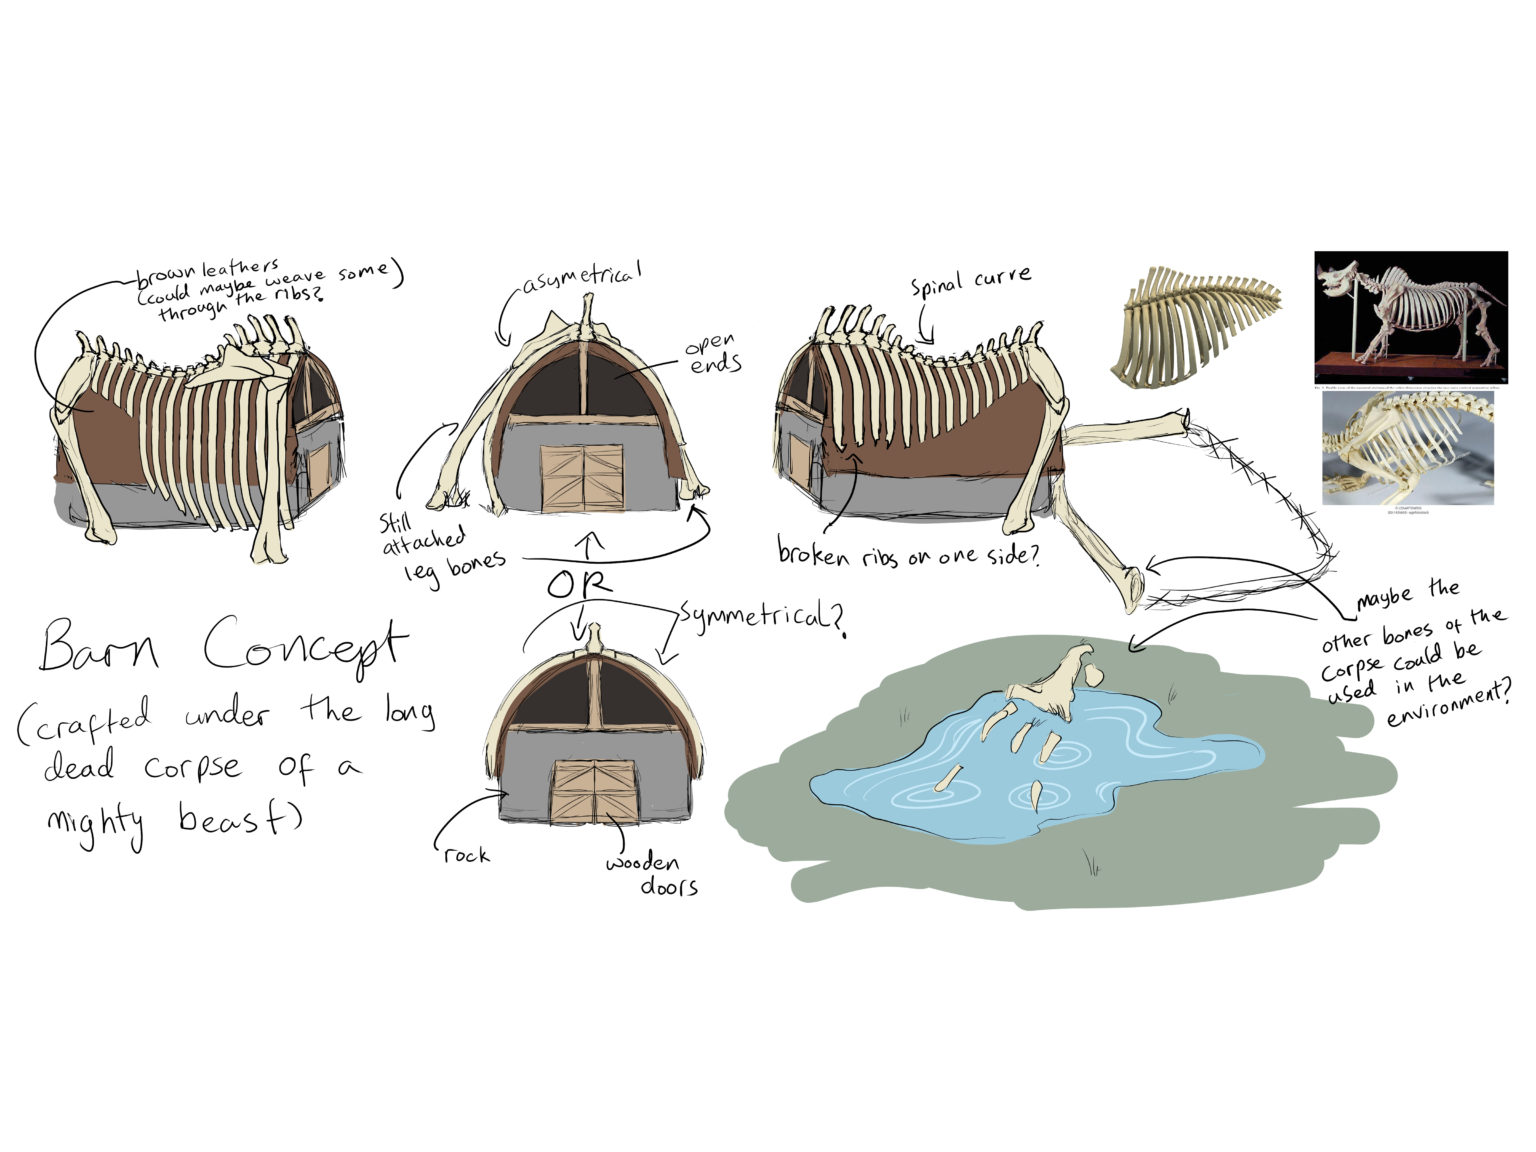 brown leathers
(could maybe weave some)
through the ribs?
asymetrical
open
ends
Still
attached
leg bones
OR
Symmetrical?
rock
wooden
doors
Spinal curve
broken ribs on one side?
maybe the
other bones of the
corpse could be
used in the
environment?
Barn Concept
(crafted under the long
dead corpse of a
mighty beast)